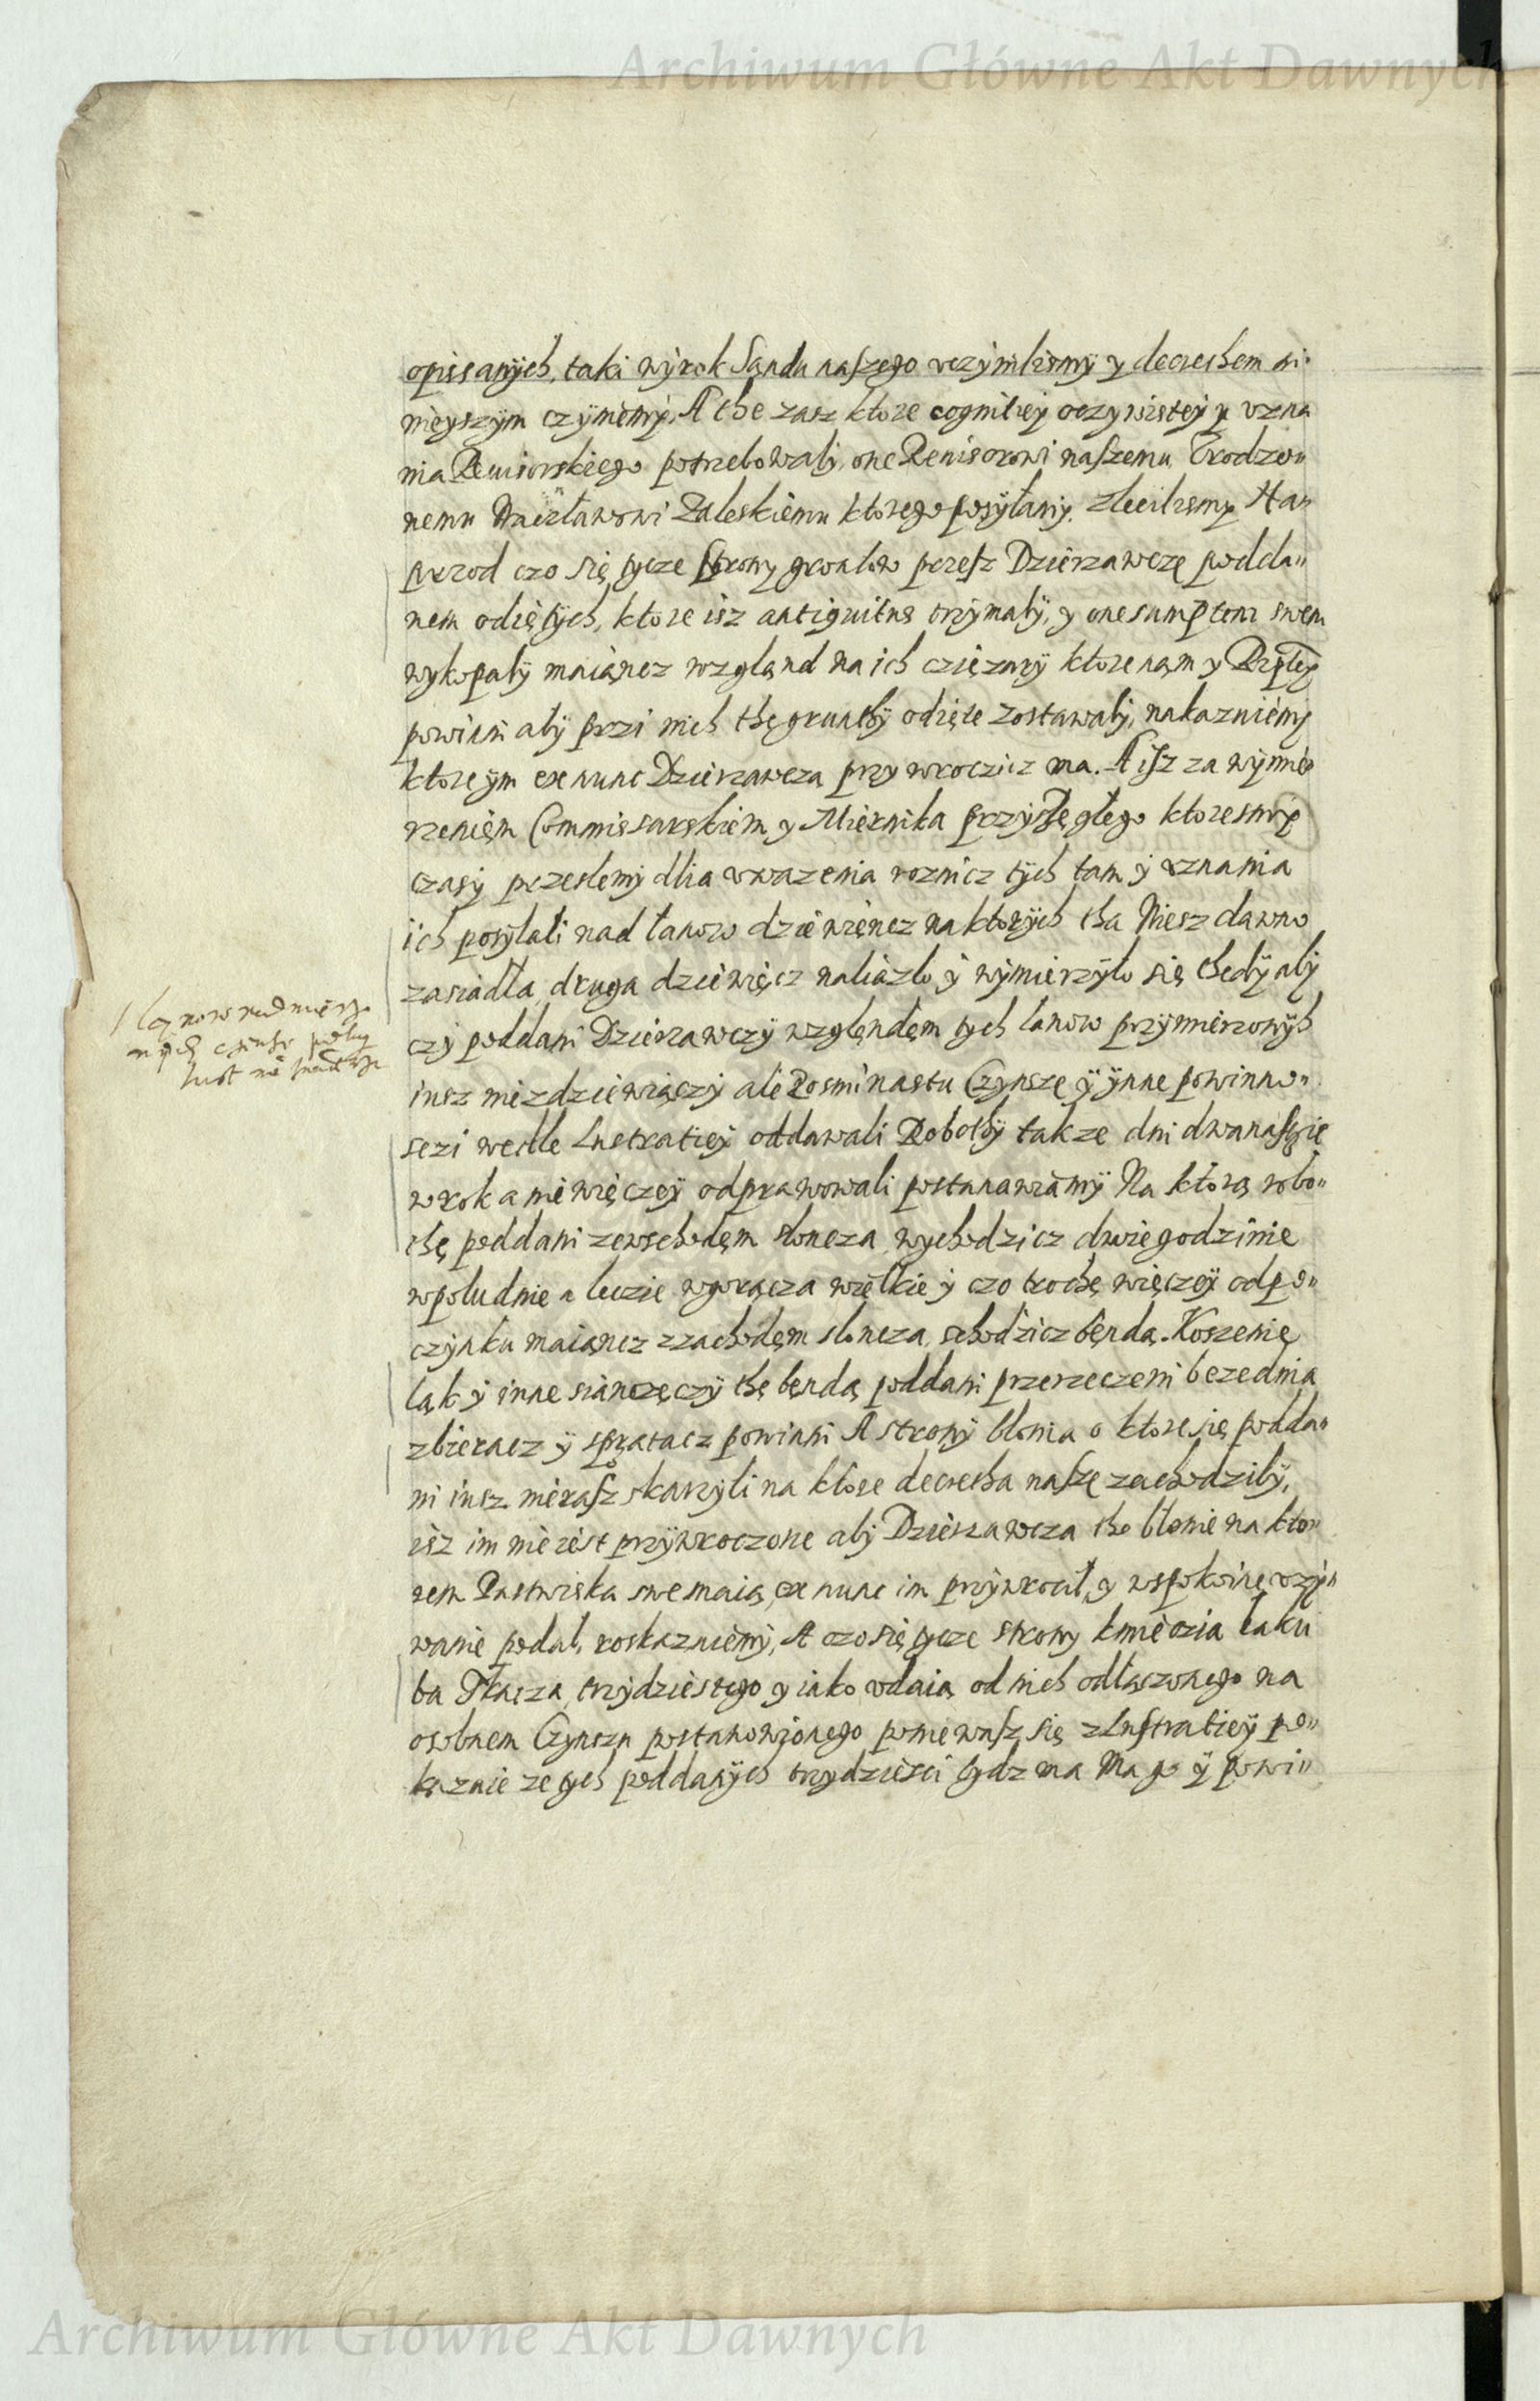 Archiwum Główne Akt Dawnych
opissanÿch, taki wÿrok Sąndu naszego vczÿnilismÿ y decrethem ni„
nieyszÿm czÿniemÿ, A the zasz ktore cognitieÿ oczÿwisteÿ y vzna
nia Reuisorskiego potrzebowalÿ, one Reuisorowi naszemu Vrodzo„
nemu Zaleskiemu ktorego posÿłamÿ, zlecilismÿ Na„
przod czo się tycze strony gruntow przesz Dzierzawczę podda„
nem odiętÿch, ktore isz antiquitus trzÿmalÿ, y one sumptem swem
wykopalÿ maiąncz wzgląnd na ich cziężarÿ ktore nam y Rzptey
powinni abÿ przi nich the grunthÿ odięte zostawalÿ, nakazuiemÿ
ktore ÿm ex nunc Dzierzawcza przywroczicz ma. A isz za wÿmie
rzenięm Commissarskiem y Miernika przÿsięgłego ktoresmÿ
czasÿ przeslemÿ dlia vwazenia roznicz tÿch tam ÿ vznania
ich posÿlali nad łanow dziewięncz na ktorÿch tha Wiesz dawno
zasiadła, druga dziewięcz naliazło ÿ wÿmierzÿlo się thedÿ abÿ
czÿ poddani Dzierzawczÿ wzglęndem tych łanow przÿmierzonÿch
iusz nie z dziewiąciÿ ale z osminastu Czynsze ÿ ÿnne powinno„
sczi wedle Lustratieÿ oddawali Robothÿ takze dni dwanascie
w rok a nie więczeÿ odprawowali postanawiamÿ Na ktorą robo„
thę poddani ze wschodęm słoncza, wychodzicz dwie godzinie
w poludnie a lecie w gorącza wielkie ÿ czo trochę więczeÿ odpo„
czÿnku maiąncz z zachodęm słoncza, schodzicz będą. Koszenie
łąk ÿ inne poddani przerzeczeni beze dnia
zbieracz ÿ sprzątacz powinni A stronÿ błonia o ktore się podda„
ni iusz nierasz skarzÿli na ktore decretha nasze zachodzilÿ,
isz im nie iest przÿwroczone abÿ Dzierzawcza tho błonie na kto„
rem Pastwiska swe maią, ex nunc im przÿwrocił, y w spokoine vzÿ„
wanie podał, roskazuiemÿ, A czo się tycze strony kmieczia Iaku
ba Tkacza, trzÿdziestego y iako vdaią od nich odłączonego na
osobnem Czynszu postanowionego poniewasz się z Lustratieÿ po„
kazuie ze tych poddanÿch trzydziesci bydz ma Ma go ÿ powi„
Archiwum Główne Akt Dawnych